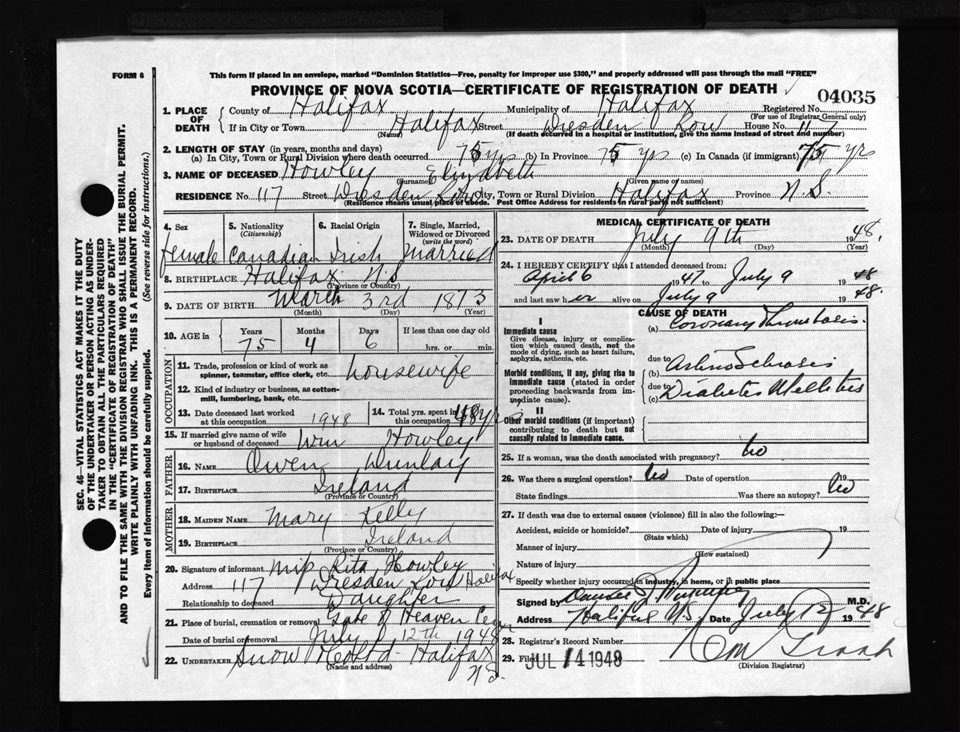 FORM 6
This form if placed in an envelope, marked "Dominion Statistics—Free, penalty for improper use $300," and properly addressed will pass through the mail "FREE"
PROVINCE OF NOVA SCOTIA—CERTIFICATE OF REGISTRATION OF DEATH
04035
1. PLACE OF DEATH
County of Halifax Municipality of Halifax Registered No.
(For use of Registrar General only)
If in City or Town Halifax Street Dresden Row House No. 117
(Name) (If death occurred in a hospital or institution, give the name instead of street and number)
2. LENGTH OF STAY (in years, months and days)
(a) In City, Town or Rural Division where death occurred 75 yrs (b) In Province 75 yrs (c) In Canada (if immigrant) 75 yrs
3. NAME OF DECEASED Howley Elizabeth
(Surname) (Given name or names)
RESIDENCE No. 117 Street Dresden Row City, Town or Rural Division Halifax Province N.S.
(Residence means usual place of abode. Post Office Address for residents in rural parts not sufficient)
4. Sex
female
5. Nationality
(Citizenship)
Canadian
6. Racial Origin
Irish
7. Single, Married, Widowed or Divorced
(write the word)
Married
8. BIRTHPLACE Halifax N.S
(Province or Country)
9. DATE OF BIRTH March 3rd 1873
(Month) (Day) (Year)
10. AGE in
Years Months Days If less than one day old
75 4 6 hrs. or min.
11. Trade, profession or kind of work as spinner, teamster, office clerk, etc. housewife
12. Kind of industry or business, as cotton-mill, lumbering, bank, etc.
13. Date deceased last worked at this occupation 1948
14. Total yrs. spent in 48 yrs
15. If married give name of wife or husband of deceased Wm Howley
FATHER
16. NAME Owen Dunlay
17. BIRTHPLACE Ireland
(Province or Country)
MOTHER
18. MAIDEN NAME Mary Kelly
19. BIRTHPLACE Ireland
(Province or Country)
20. Signature of informant Rita Howley
Address 117 Dresden Row Halifax
Relationship to deceased Daughter
21. Place of burial, cremation or removal Gate of Heaven Cem
Date of burial or removal July 12th 1948
22. UNDERTAKER Snow Halifax
N.S.
MEDICAL CERTIFICATE OF DEATH
23. DATE OF DEATH July 9th 1948.
(Month) (Day) (Year)
24. I HEREBY CERTIFY that I attended deceased from:
April 6 1947 to July 9 1948
and last saw her alive on July 9 1948.
CAUSE OF DEATH
I
Immediate cause
Give disease, injury or complication which caused death, not the mode of dying, such as heart failure, asphyxia, asthenia, etc.
(a) Coronary Thrombosis.
due to
Morbid conditions, if any, giving rise to immediate cause (stated in order proceeding backwards from immediate cause).
(b) Arterio Sclerosis
due to
(c) Diabetes Mellitus
II
Other morbid conditions (if important) contributing to death but not causally related to immediate cause.
25. If a woman, was the death associated with pregnancy? No
26. Was there a surgical operation? No Date of operation 19
State findings Was there an autopsy? No
27. If death was due to external causes (violence) fill in also the following:—
Accident, suicide or homicide? Date of injury 19
(State which)
Manner of injury
(How sustained)
Nature of injury
Specify whether injury occurred in industry, in home, or in public place
Signed by M.D.
Address Halifax N.S. Date July 12 1948
28. Registrar's Record Number
29. Filed JUL 14 1948
(Division Registrar)
SEC. 46—VITAL STATISTICS ACT MAKES IT THE DUTY
OF THE UNDERTAKER OR PERSON ACTING AS UNDER-
TAKER TO OBTAIN ALL THE PARTICULARS REQUIRED
IN THE "CERTIFICATE OF REGISTRATION OF DEATH"
AND TO FILE THE SAME WITH THE DIVISION REGISTRAR WHO SHALL ISSUE THE BURIAL PERMIT.
WRITE PLAINLY WITH UNFADING INK. THIS IS A PERMANENT RECORD.
Every item of information should be carefully supplied. (See reverse side for instructions.)